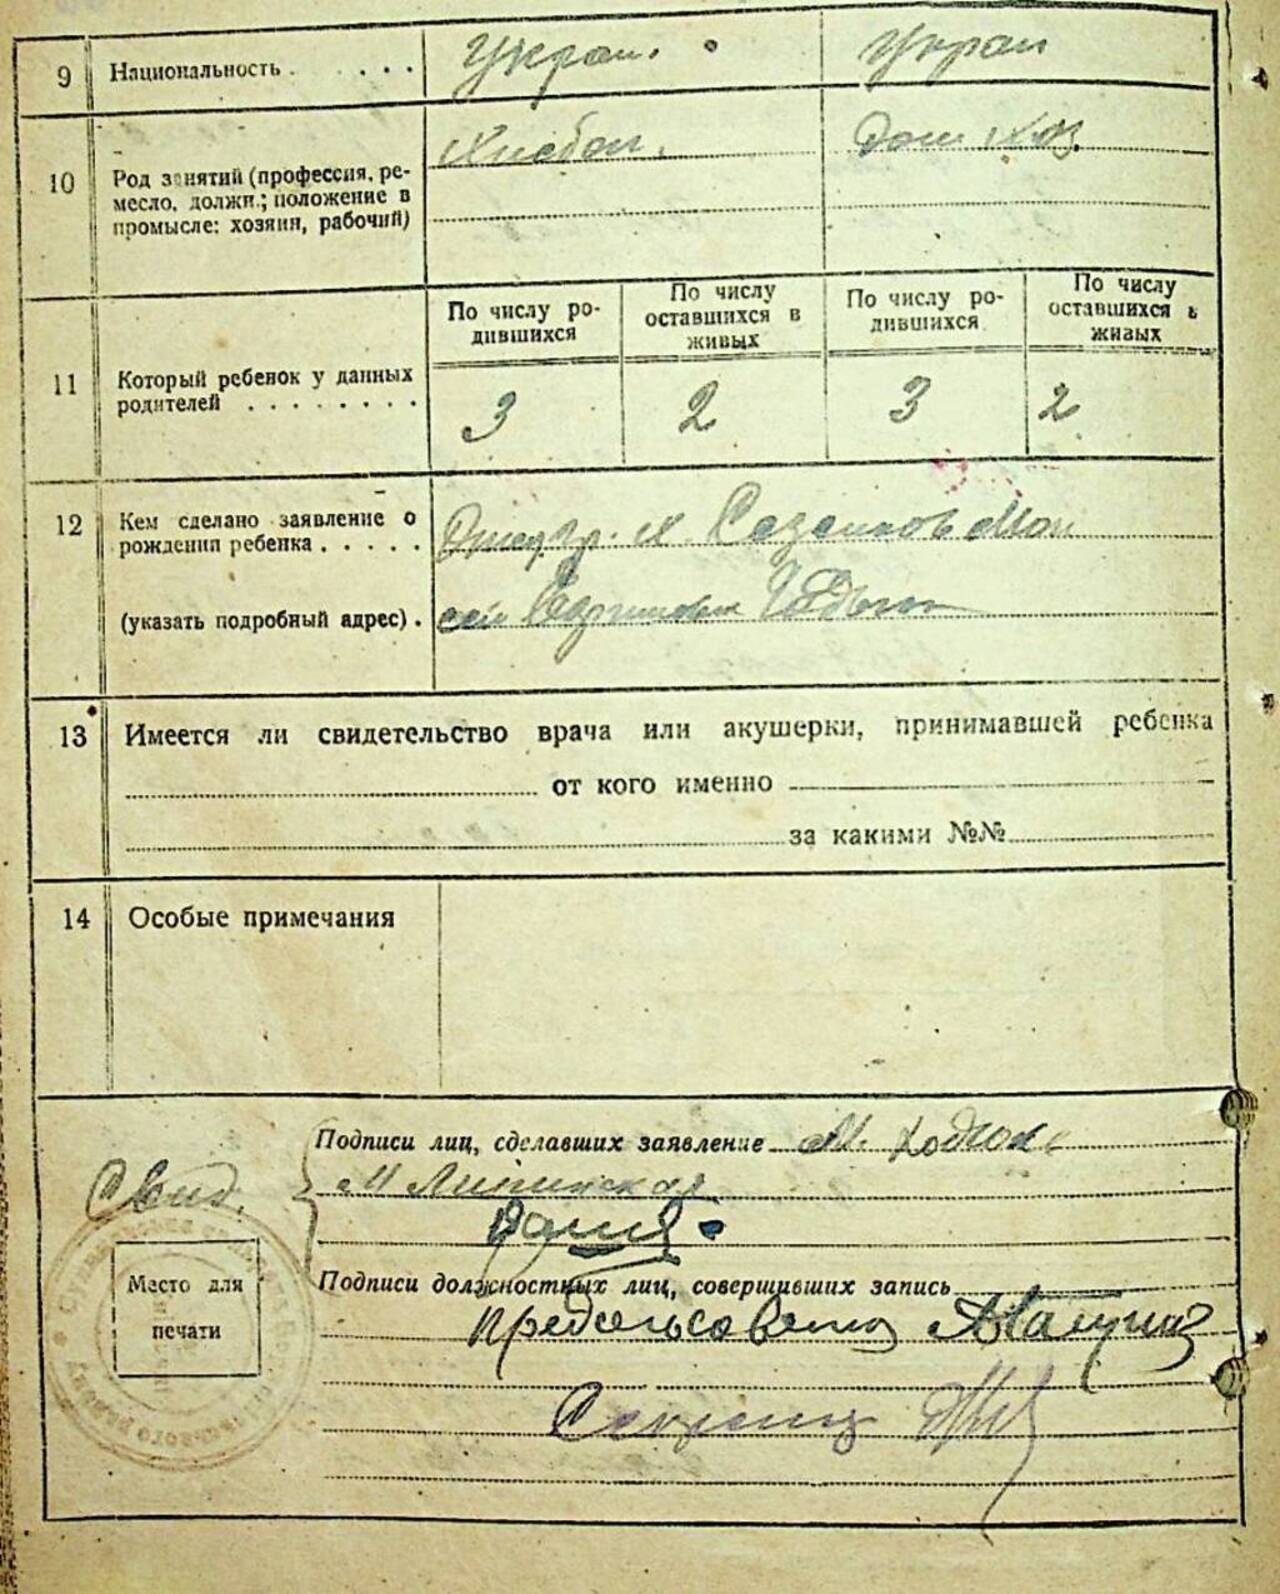 9 Национальность . . . . . Украин. Украи
10 Род занятий (профессия, ре-
месло, должн.; положение в
промысле: хозяин, рабочий)
Хлебоп. Дом. хоз.
По числу ро-
дившихся
По числу
оставшихся в
живых
По числу ро-
дившихся
По числу
оставшихся в
живых
11 Который ребенок у данных
родителей . . . . . . . .
3 2 3 2
12 Кем сделано заявление о
рождения ребенка . . . . .
(указать подробный адрес) .
13 Имеется ли свидетельство врача или акушерки, принимавшей ребенка
от кого именно
за какими №№
14 Особые примечания
Подписи лиц, сделавших заявление М.
Свид. М
Место для
печати
Подписи должностных лиц, совершивших запись
Предсельсовета
Секретар